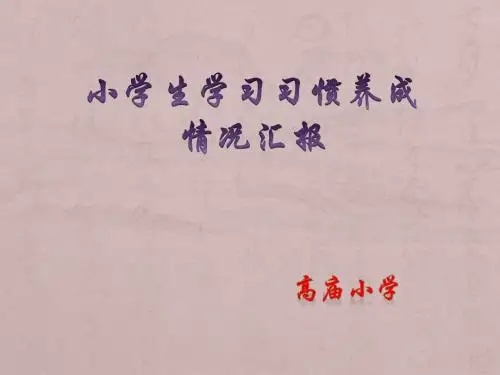 小学生学习习惯养成
情况汇报
高庙小学